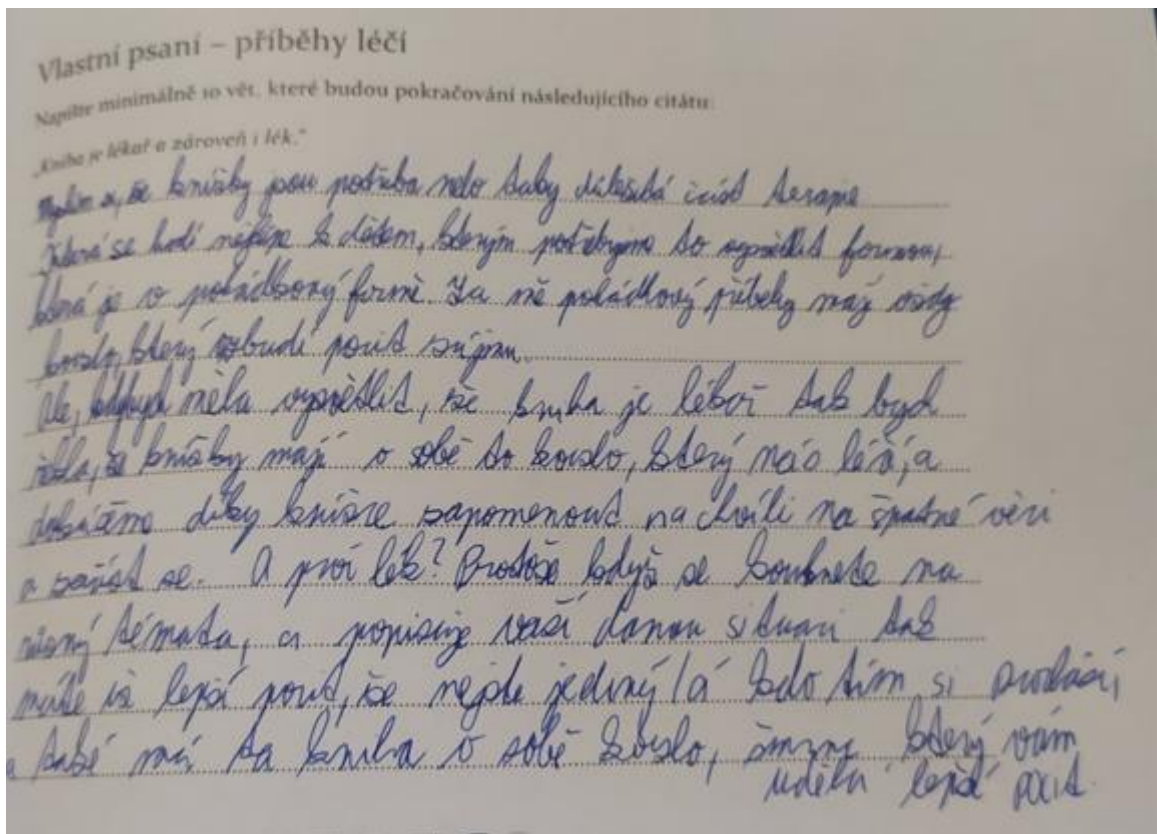 Vlastní psaní – příběhy léčí
Napište minimálně 10 vět, které budou pokračování následujícího citátu:
„Kniha je lékař a zároveň i lék."
Myslím si, že knížky jsou potřeba nebo taky důležitá část terapie
která se hodí nejlépe k dětem, kterým potřebujeme to vysvětlit formou,
která je v pohádkový formě. Za mě pohádkový příběhy mají vždy
kouzlo, který vzbudí pocit zájmu.
Ale, kdybych měla vysvětlit, že kniha je lékař tak bych
řekla, že knížky mají v sobě to kouzlo, který nás léčí, a
dokážeme díky knížce zapomenout na chvíli na špatné věci
a zasnít se. A proč lék? Protože když se kouknete na
různý témata, a popisuje vaší danou situaci tak
máte i lepší pocit, že nejste jediný/á kdo tím si prochází,
a také má ta kniha v sobě kouzlo, který vám
udělá lepší pocit.